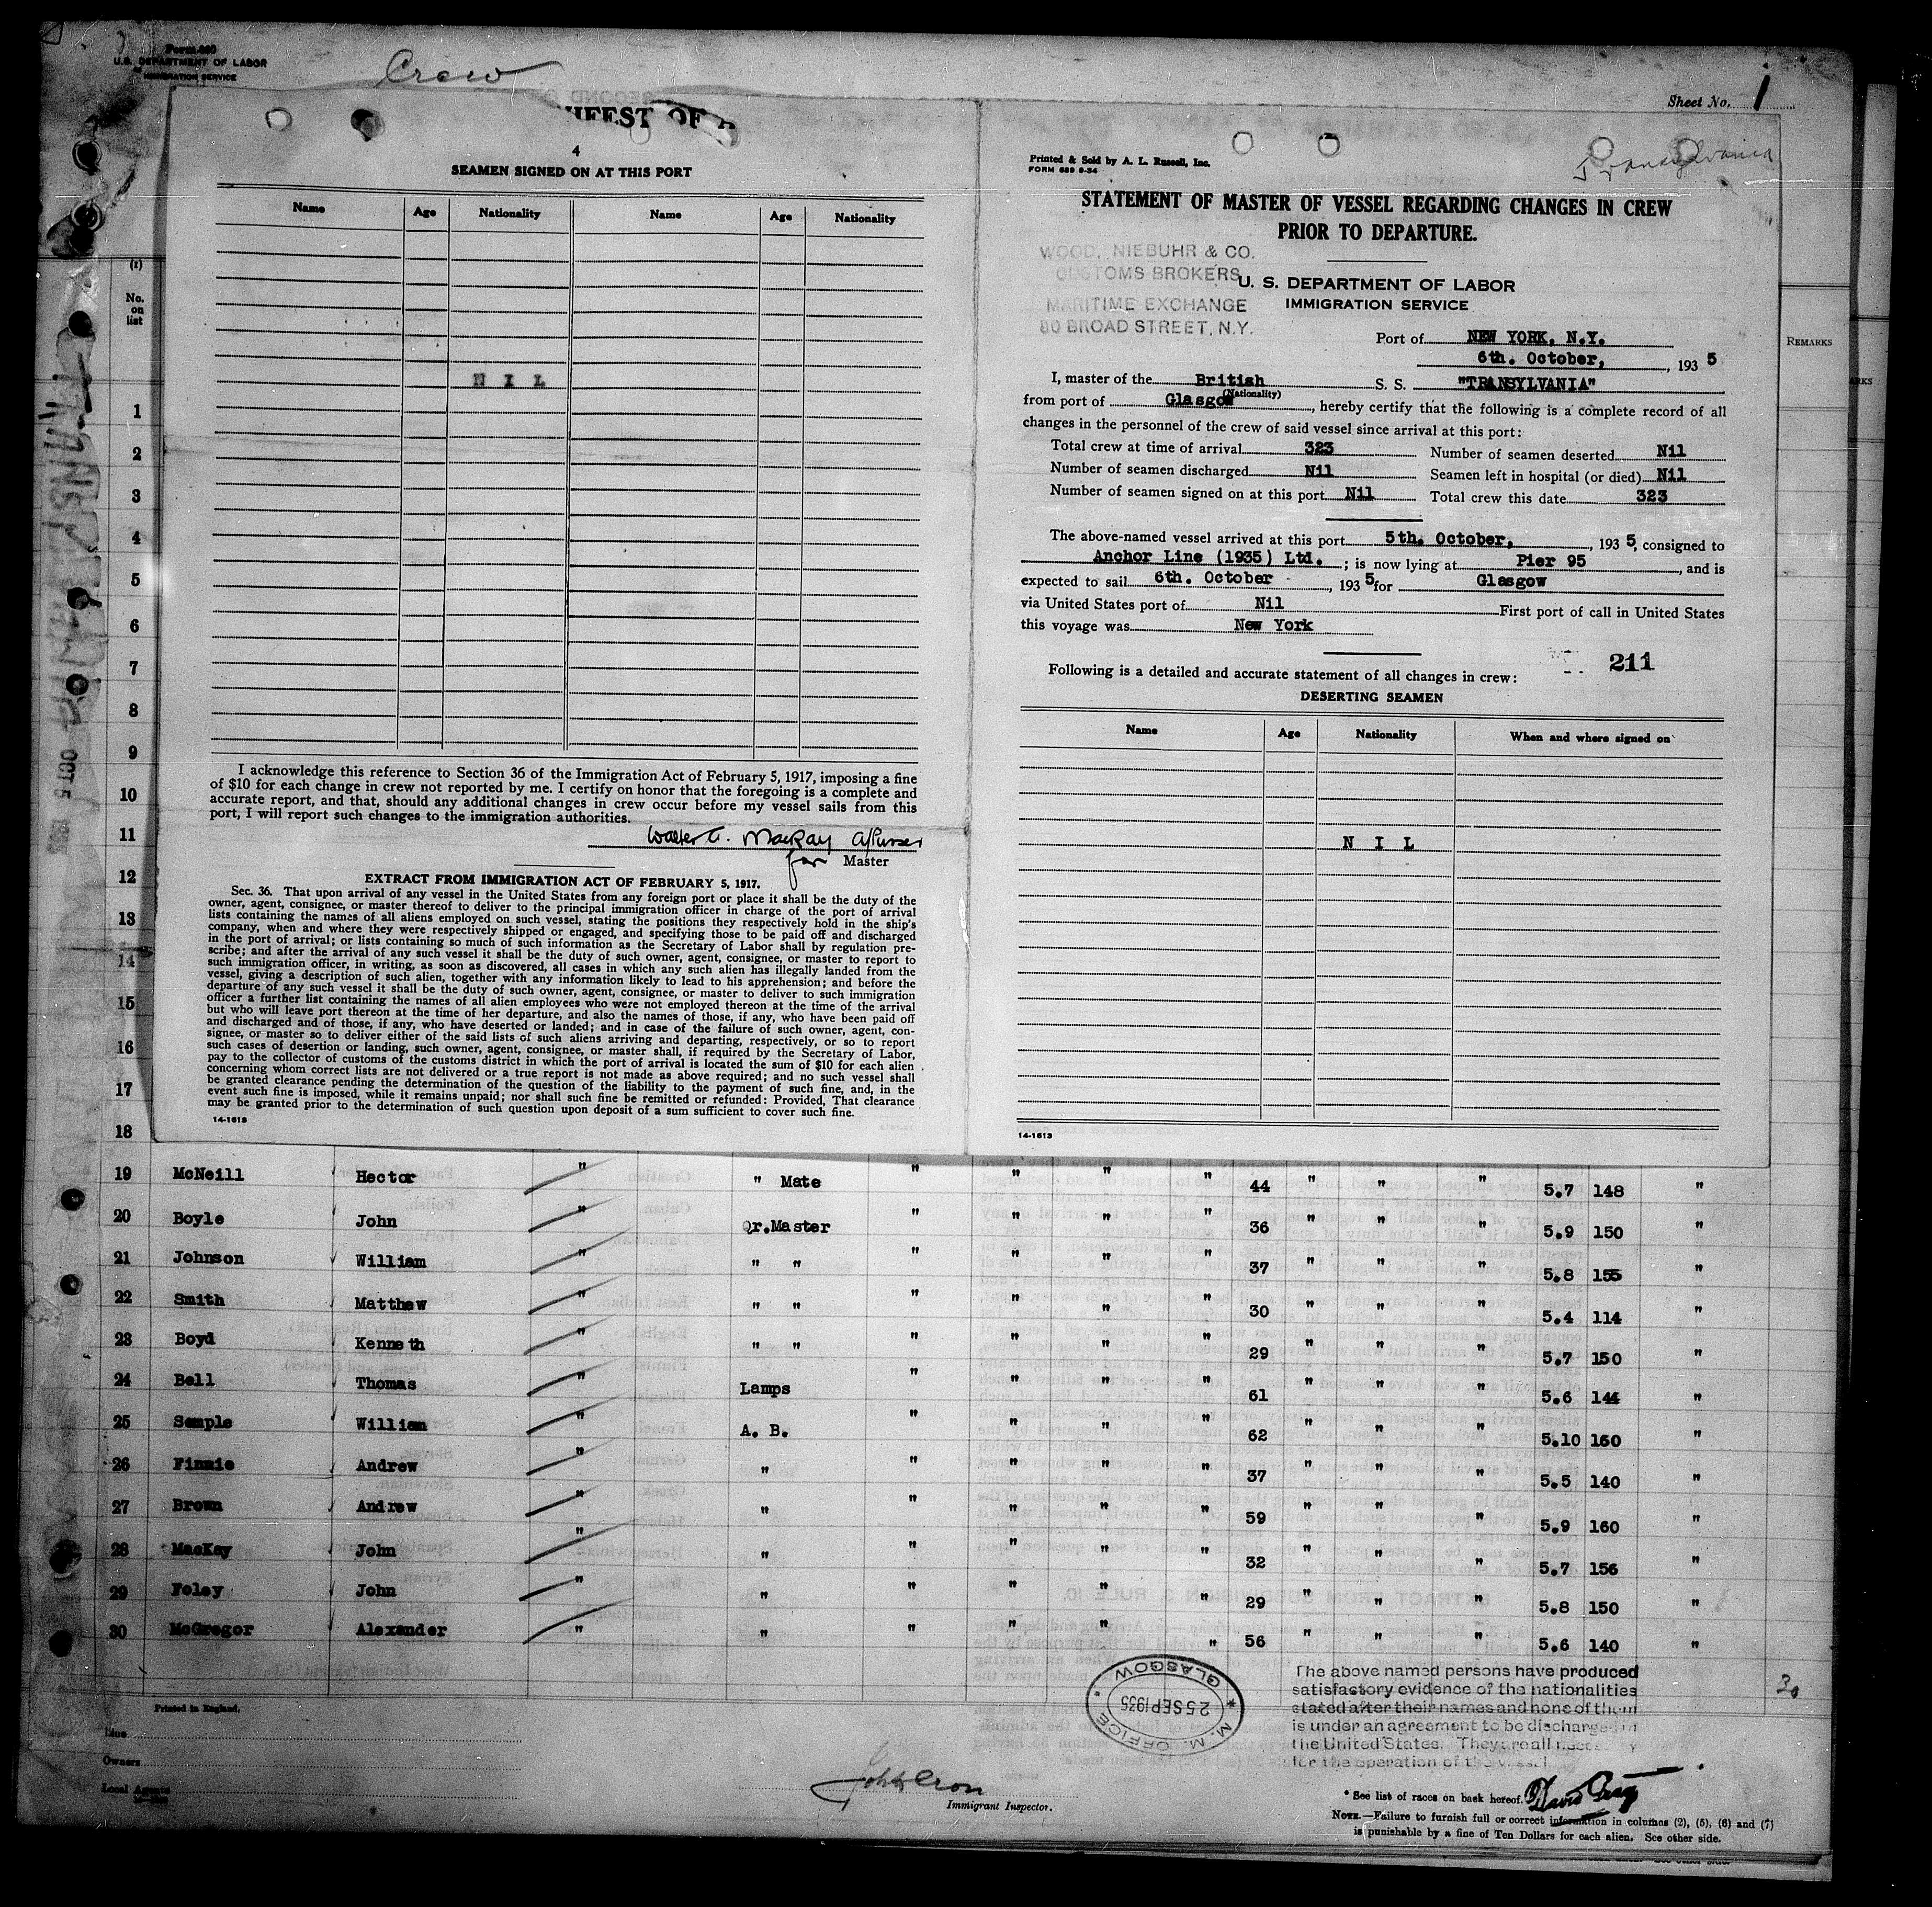 Form 680
U.S. DEPARTMENT OF LABOR
IMMIGRATION SERVICE
Crew
Sheet No. 1
IFEST OF
(1)
No. on list
1
2
3
4
5
6
7
8
9
10
11
12
13
14
15
16
17
18
OCT 5
4
SEAMEN SIGNED ON AT THIS PORT
Name Age Nationality Name Age Nationality
N I L
I acknowledge this reference to Section 36 of the Immigration Act of February 5, 1917, imposing a fine
of $10 for each change in crew not reported by me. I certify on honor that the foregoing is a complete and
accurate report, and that, should any additional changes in crew occur before my vessel sails from this
port, I will report such changes to the immigration authorities.
Walter G. MacKay A/Purser
for Master
EXTRACT FROM IMMIGRATION ACT OF FEBRUARY 5, 1917.
Sec. 36. That upon arrival of any vessel in the United States from any foreign port or place it shall be the duty of the
owner, agent, consignee, or master thereof to deliver to the principal immigration officer in charge of the port of arrival
lists containing the names of all aliens employed on such vessel, stating the positions they respectively hold in the ship's
company, when and where they were respectively shipped or engaged, and specifying those to be paid off and discharged
in the port of arrival; or lists containing so much of such information as the Secretary of Labor shall by regulation pre-
scribe; and after the arrival of any such vessel it shall be the duty of such owner, agent, consignee, or master to report to
such immigration officer, in writing, as soon as discovered, all cases in which any such alien has illegally landed from the
vessel, giving a description of such alien, together with any information likely to lead to his apprehension; and before the
departure of any such vessel it shall be the duty of such owner, agent, consignee, or master to deliver to such immigration
officer a further list containing the names of all alien employees who were not employed thereon at the time of the arrival
but who will leave port thereon at the time of her departure, and also the names of those, if any, who have been paid off
and discharged and of those, if any, who have deserted or landed; and in case of the failure of such owner, agent, con-
signee, or master so to deliver either of the said lists of such aliens arriving and departing, respectively, or so to report
such cases of desertion or landing, such owner, agent, consignee, or master shall, if required by the Secretary of Labor,
pay to the collector of customs of the customs district in which the port of arrival is located the sum of $10 for each alien
concerning whom correct lists are not delivered or a true report is not made as above required; and no such vessel shall
be granted clearance pending the determination of the question of the liability to the payment of such fine, and, in the
event such fine is imposed, while it remains unpaid; nor shall such fine be remitted or refunded: Provided, That clearance
may be granted prior to the determination of such question upon deposit of a sum sufficient to cover such fine.
14-1613
Printed & Sold by A. L. Russell, Inc.
FORM 689 9-34
Transylvania
STATEMENT OF MASTER OF VESSEL REGARDING CHANGES IN CREW
PRIOR TO DEPARTURE.
WOOD, NIEBUHR & CO.
CUSTOMS BROKERS
MARITIME EXCHANGE
80 BROAD STREET, N.Y.
U. S. DEPARTMENT OF LABOR
IMMIGRATION SERVICE
Port of NEW YORK, N.Y.
6th. October, , 193 5
I, master of the British S. S. "TRANSYLVANIA"
(Nationality)
from port of Glasgow , hereby certify that the following is a complete record of all
changes in the personnel of the crew of said vessel since arrival at this port:
Total crew at time of arrival 323 Number of seamen deserted Nil
Number of seamen discharged Nil Seamen left in hospital (or died) Nil
Number of seamen signed on at this port Nil Total crew this date 323
The above-named vessel arrived at this port 5th. October, , 193 5, consigned to
Anchor Line (1935) Ltd. ; is now lying at Pier 95 , and is
expected to sail 6th. October , 193 5 for Glasgow
via United States port of Nil First port of call in United States
this voyage was New York
211
Following is a detailed and accurate statement of all changes in crew:
DESERTING SEAMEN
Name Age Nationality When and where signed on
N I L
14-1613
REMARKS
19 McNeill Hector " " Mate " " " " 44 " " " 5.7 148 "
20 Boyle John " Qr.Master " " " " 36 " " " 5.9 150 "
21 Johnson William " " " " " " " 37 " " " 5.8 155 "
22 Smith Matthew " " " " " " " 30 " " " 5.4 114 "
23 Boyd Kenneth " " " " " " " 29 " " " 5.7 150 "
24 Bell Thomas " Lamps " " " " 61 " " " 5.6 144 "
25 Semple William " A. B. " " " " 62 " " " 5.10 160 "
26 Finnie Andrew " " " " " " 37 " " " 5.5 140 "
27 Brown Andrew " " " " " " 59 " " " 5.9 160 "
28 MacKay John " " " " " " 32 " " " 5.7 156 "
29 Foley John " " " " " " 29 " " " 5.8 150 "
30 McGregor Alexander " " " " " " 56 " " " 5.6 140 "
30
M. M. OFFICE * GLASGOW *
25 SEP 1935
The above named persons have produced
satisfactory evidence of the nationalities
stated after their names and none of them
is under an agreement to be discharged in
the United States. They are all
for the operation of the vessel
Printed in England.
Line
Owners
Local Agents
John Cron
Immigrant Inspector.
* See list of races on back hereof.
David Craig
NOTE.—Failure to furnish full or correct information in columns (2), (5), (6) and (7)
is punishable by a fine of Ten Dollars for each alien. See other side.